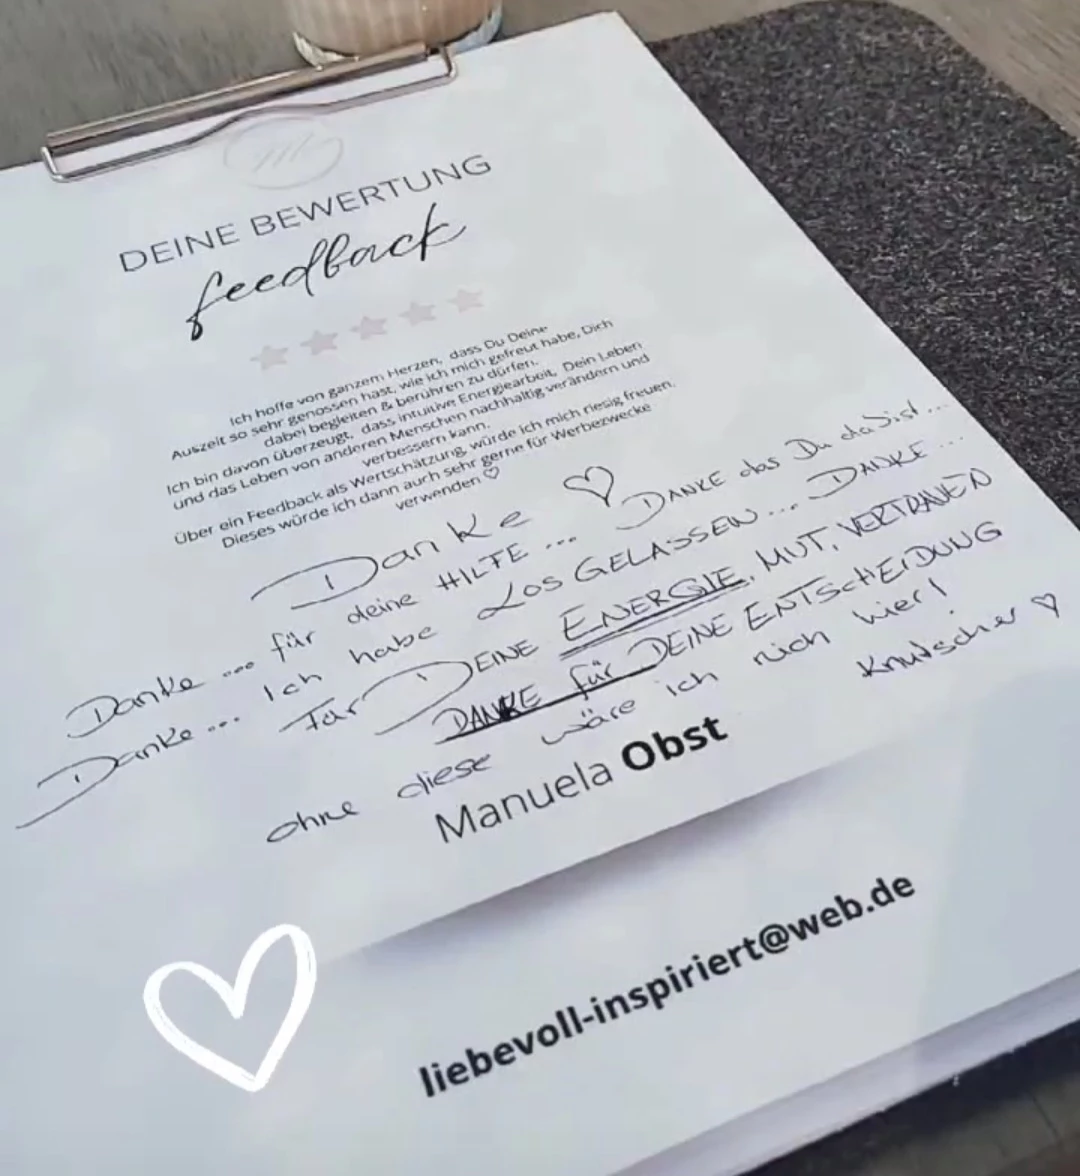 DEINE BEWERTUNG
feedback
Ich hoffe von ganzem Herzen, dass Du Deine
Auszeit so sehr genossen hast, wie ich mich gefreut habe, Dich
dabei begleiten & berühren zu dürfen.
Ich bin davon überzeugt, dass intuitive Energiearbeit, Dein Leben
und das Leben von anderen Menschen nachhaltig verändern und
verbessern kann.
Über ein Feedback als Wertschätzung, würde ich mich riesig freuen.
Dieses würde ich dann auch sehr gerne für Werbezwecke
verwenden ♡
Danke ♡
Danke ... für deine HILFE ... DANKE das Du da bist ...
Danke ... Ich habe LOS GELASSEN ... DANKE ...
Für DEINE ENERGIE, MUT, VERTRAUEN
DANKE für DEINE ENTSCHEIDUNG
ohne diese wäre ich nich hier!
Knutscher ♡
Manuela Obst
liebevoll-inspiriert@web.de